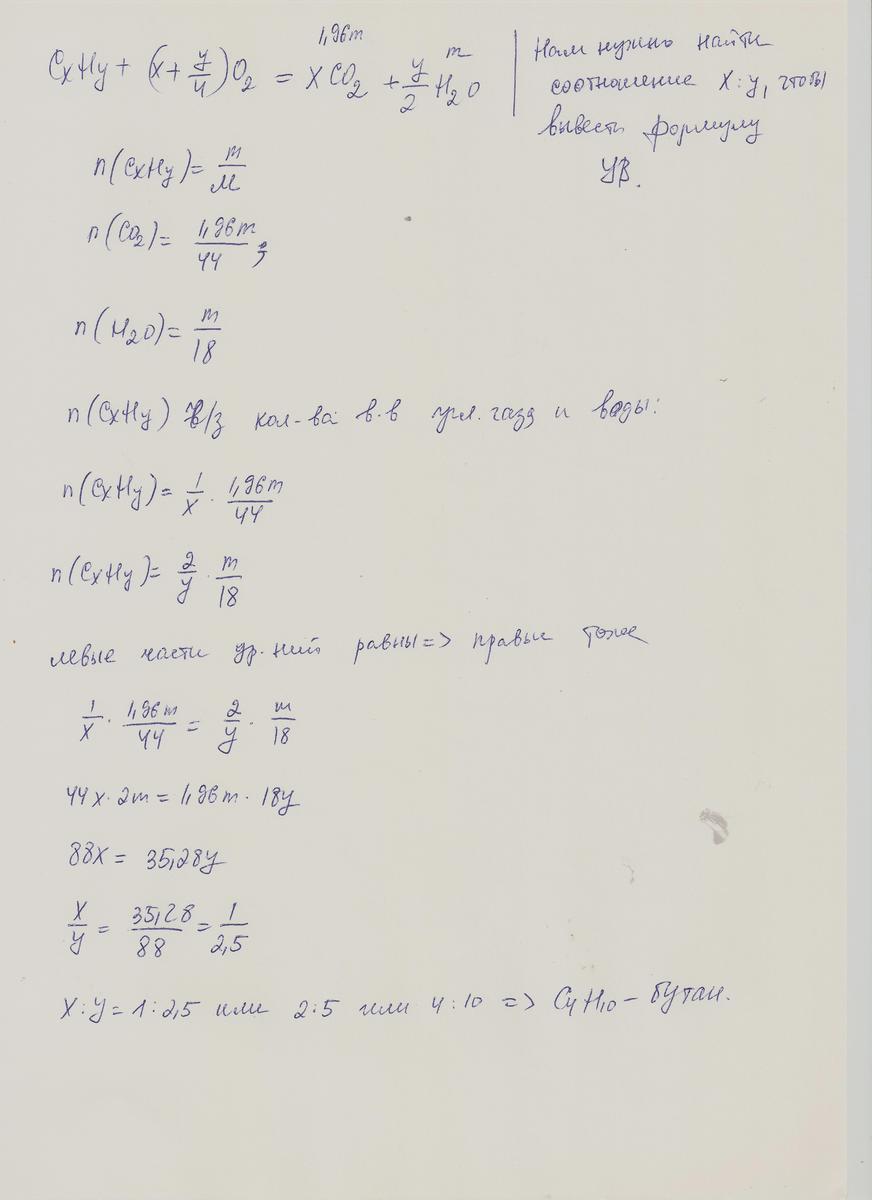 1,96m m
CxHy + (x + y/4)O2 = XCO2 + y/2 H2O
Нам нужно найти
соотношение X:y, чтобы
вывести формулу
УВ.
n(CxHy) = m/M
n(CO2) = 1,96m/44;
n(H2O) = m/18
n(CxHy) ч/з кол-ва в-в угл. газа и воды:
n(CxHy) = 1/x · 1,96m/44
n(CxHy) = 2/y · m/18
левые части ур-ний равны => правые тоже
1/x · 1,96m/44 = 2/y · m/18
44x · 2m = 1,96m · 18y
88x = 35,28y
x/y = 35,28/88 = 1/2,5
X:y = 1:2,5 или 2:5 или 4:10 => C4H10 - бутан.